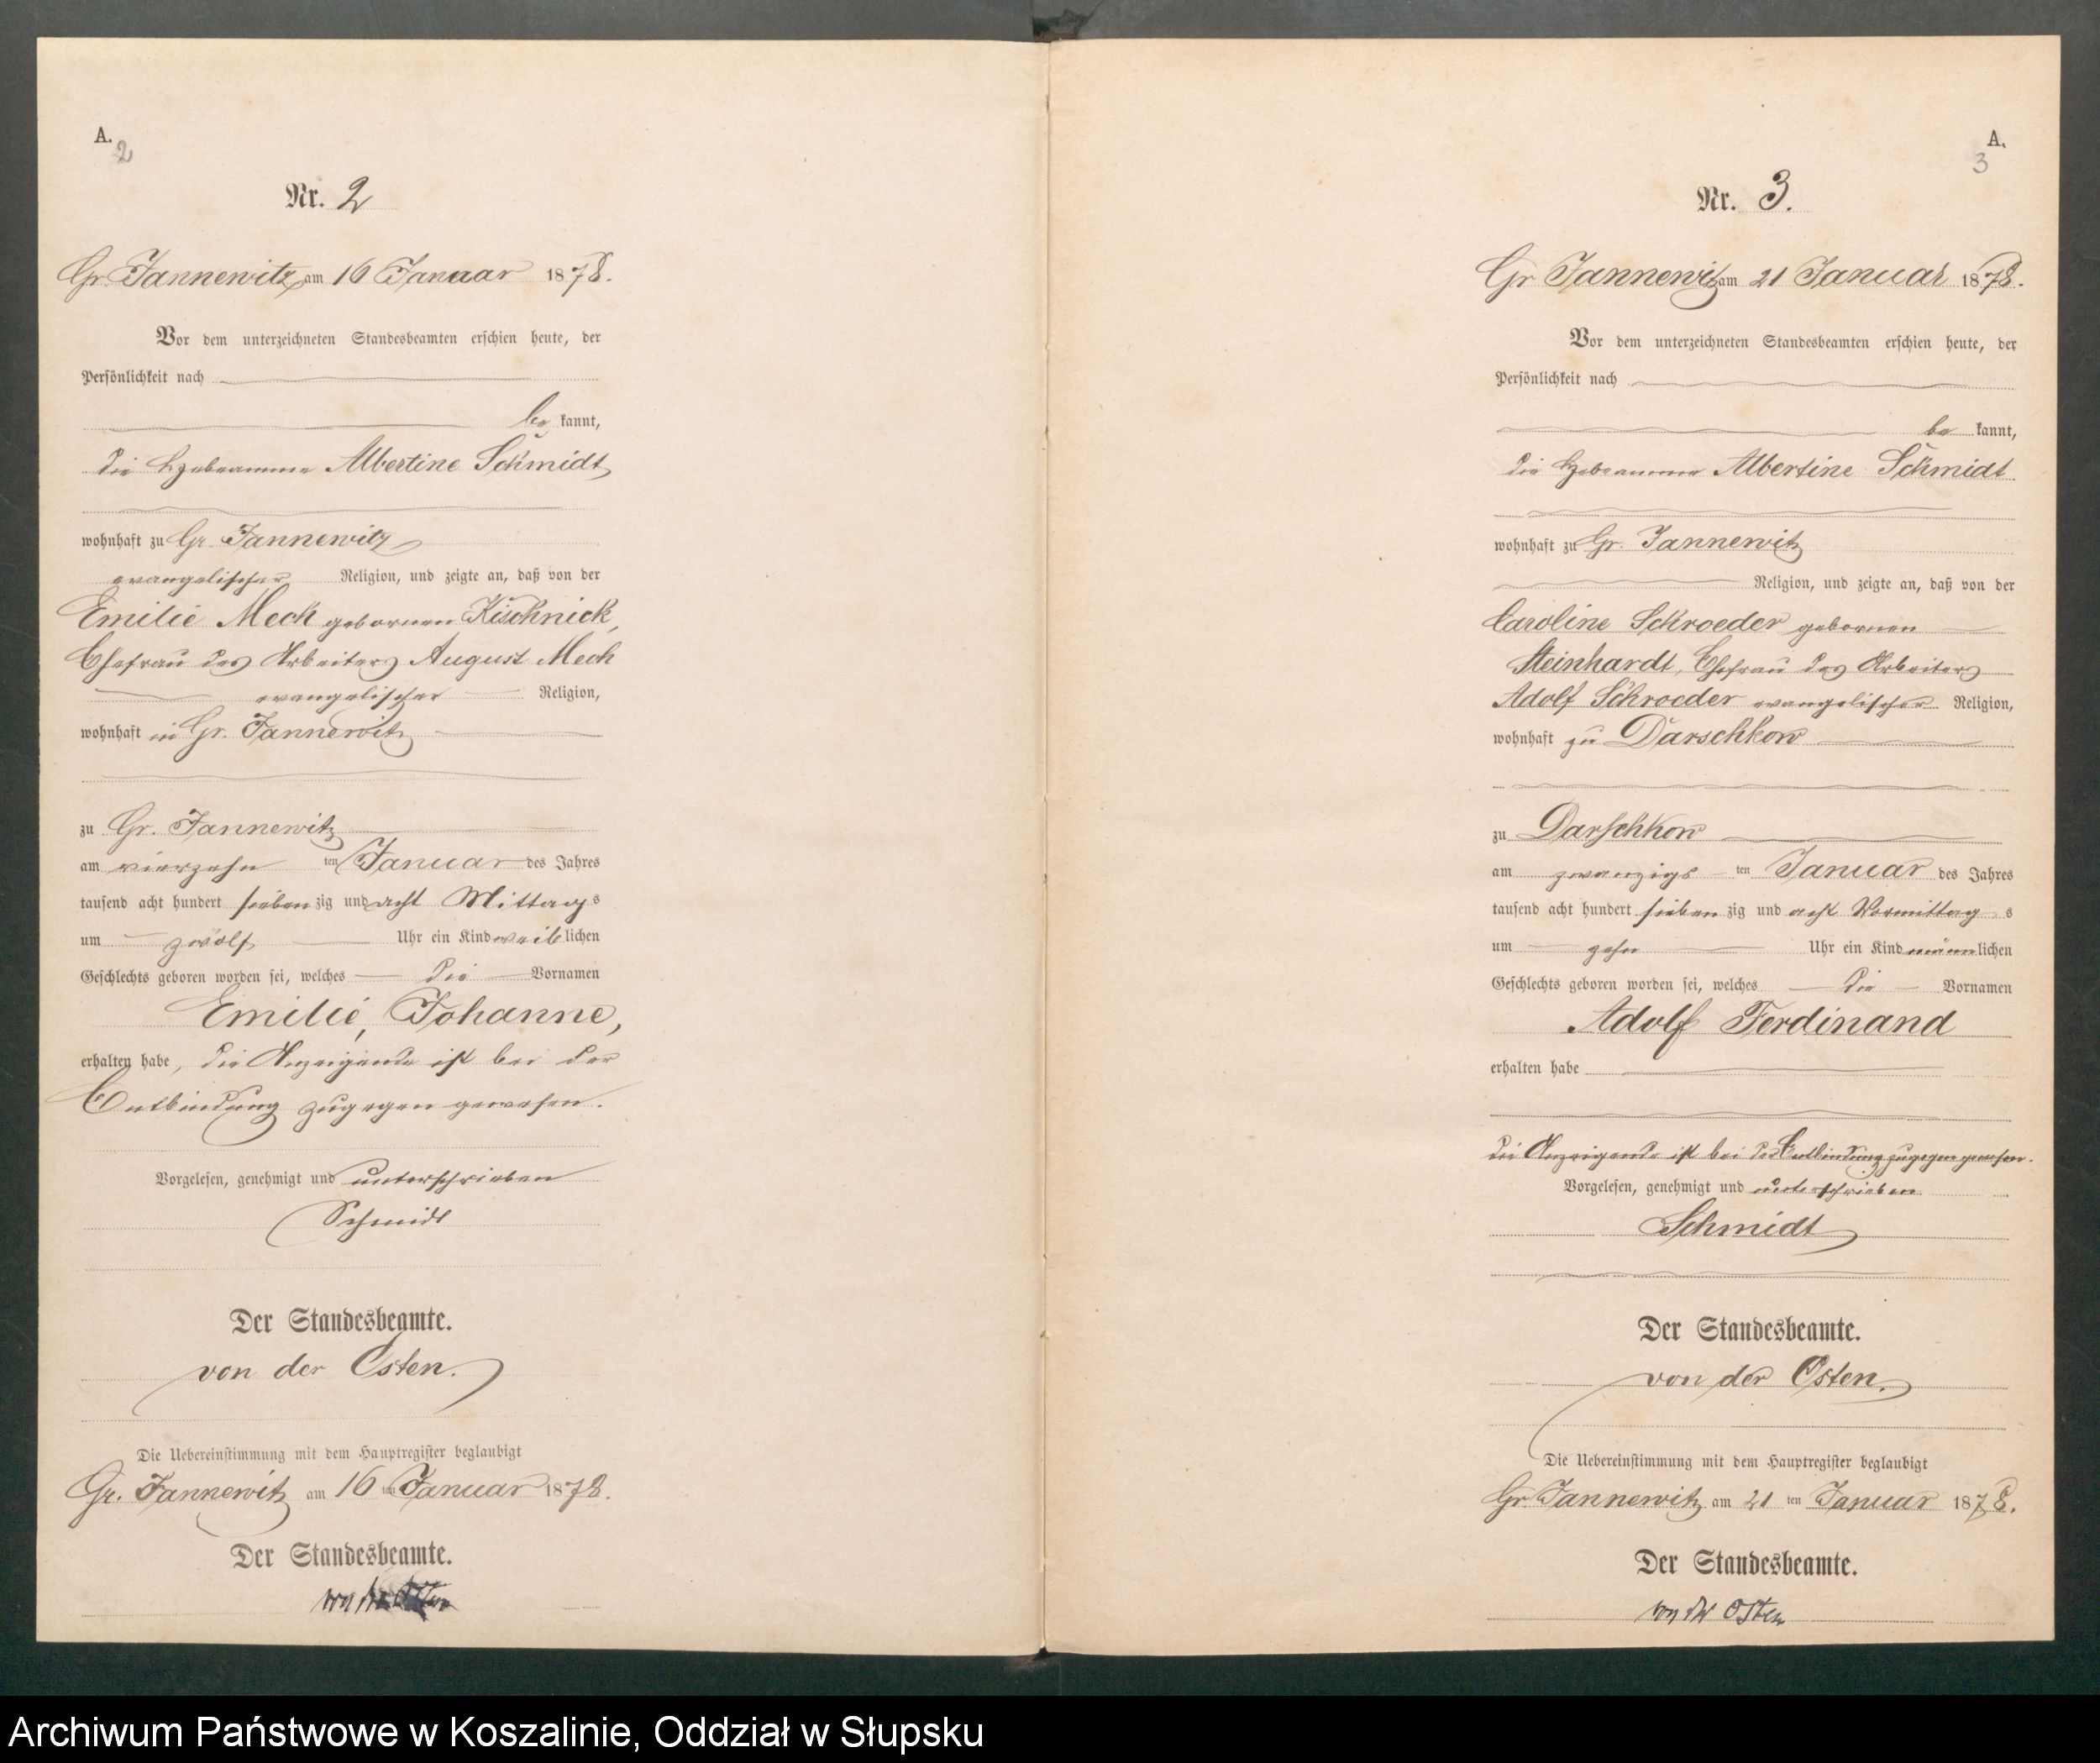 A.
2
Nr. 2
Gr. Jannewitz am 16 Januar 1878.
Vor dem unterzeichneten Standesbeamten erschien heute, der
Persönlichkeit nach
be kannt,
die Hebeamme Albertine Schmidt
wohnhaft zu Gr. Jannewitz
evangelischer Religion, und zeigte an, daß von der
Emilie Meck gebornen Kischnick,
Ehefrau des Arbeiters August Meck
evangelischer Religion,
wohnhaft in Gr. Jannewitz
zu Gr. Jannewitz
am vierzehn ten Januar des Jahres
tausend acht hundert sieben zig und acht Mittags
um zwölf Uhr ein Kind weiblichen
Geschlechts geboren worden sei, welches die Vornamen
Emilie, Johanne,
erhalten habe, die Anzeigende ist bei der
Entbindung zugegen gewesen.
Vorgelesen, genehmigt und unterschrieben
Schmidt
Der Standesbeamte.
von der Osten.
Die Uebereinstimmung mit dem Hauptregister beglaubigt
Gr. Jannewitz am 16 ten Januar 1878.
Der Standesbeamte.
von der Osten
A.
3
Nr. 3.
Gr Jannewitz am 21 Januar 1878.
Vor dem unterzeichneten Standesbeamten erschien heute, der
Persönlichkeit nach
be kannt,
die Hebeamme Albertine Schmidt
wohnhaft zu Gr. Jannewitz
Religion, und zeigte an, daß von der
Caroline Schroeder gebornen
Steinhardt, Ehefrau des Arbeiters
Adolf Schroeder evangelischer Religion,
wohnhaft zu Darschkow
zu Darschkow
am zwanzigs ten Januar des Jahres
tausend acht hundert sieben zig und acht Vormittag s
um zehn Uhr ein Kind männlichen
Geschlechts geboren worden sei, welches die Vornamen
Adolf Ferdinand
erhalten habe
die Anzeigende ist bei der Entbindung zugegen gewesen.
Vorgelesen, genehmigt und unterschrieben
Schmidt
Der Standesbeamte.
von der Osten.
Die Uebereinstimmung mit dem Hauptregister beglaubigt
Gr Jannewitz am 21 ten Januar 1878.
Der Standesbeamte.
von der Osten
Archiwum Państwowe w Koszalinie, Oddział w Słupsku